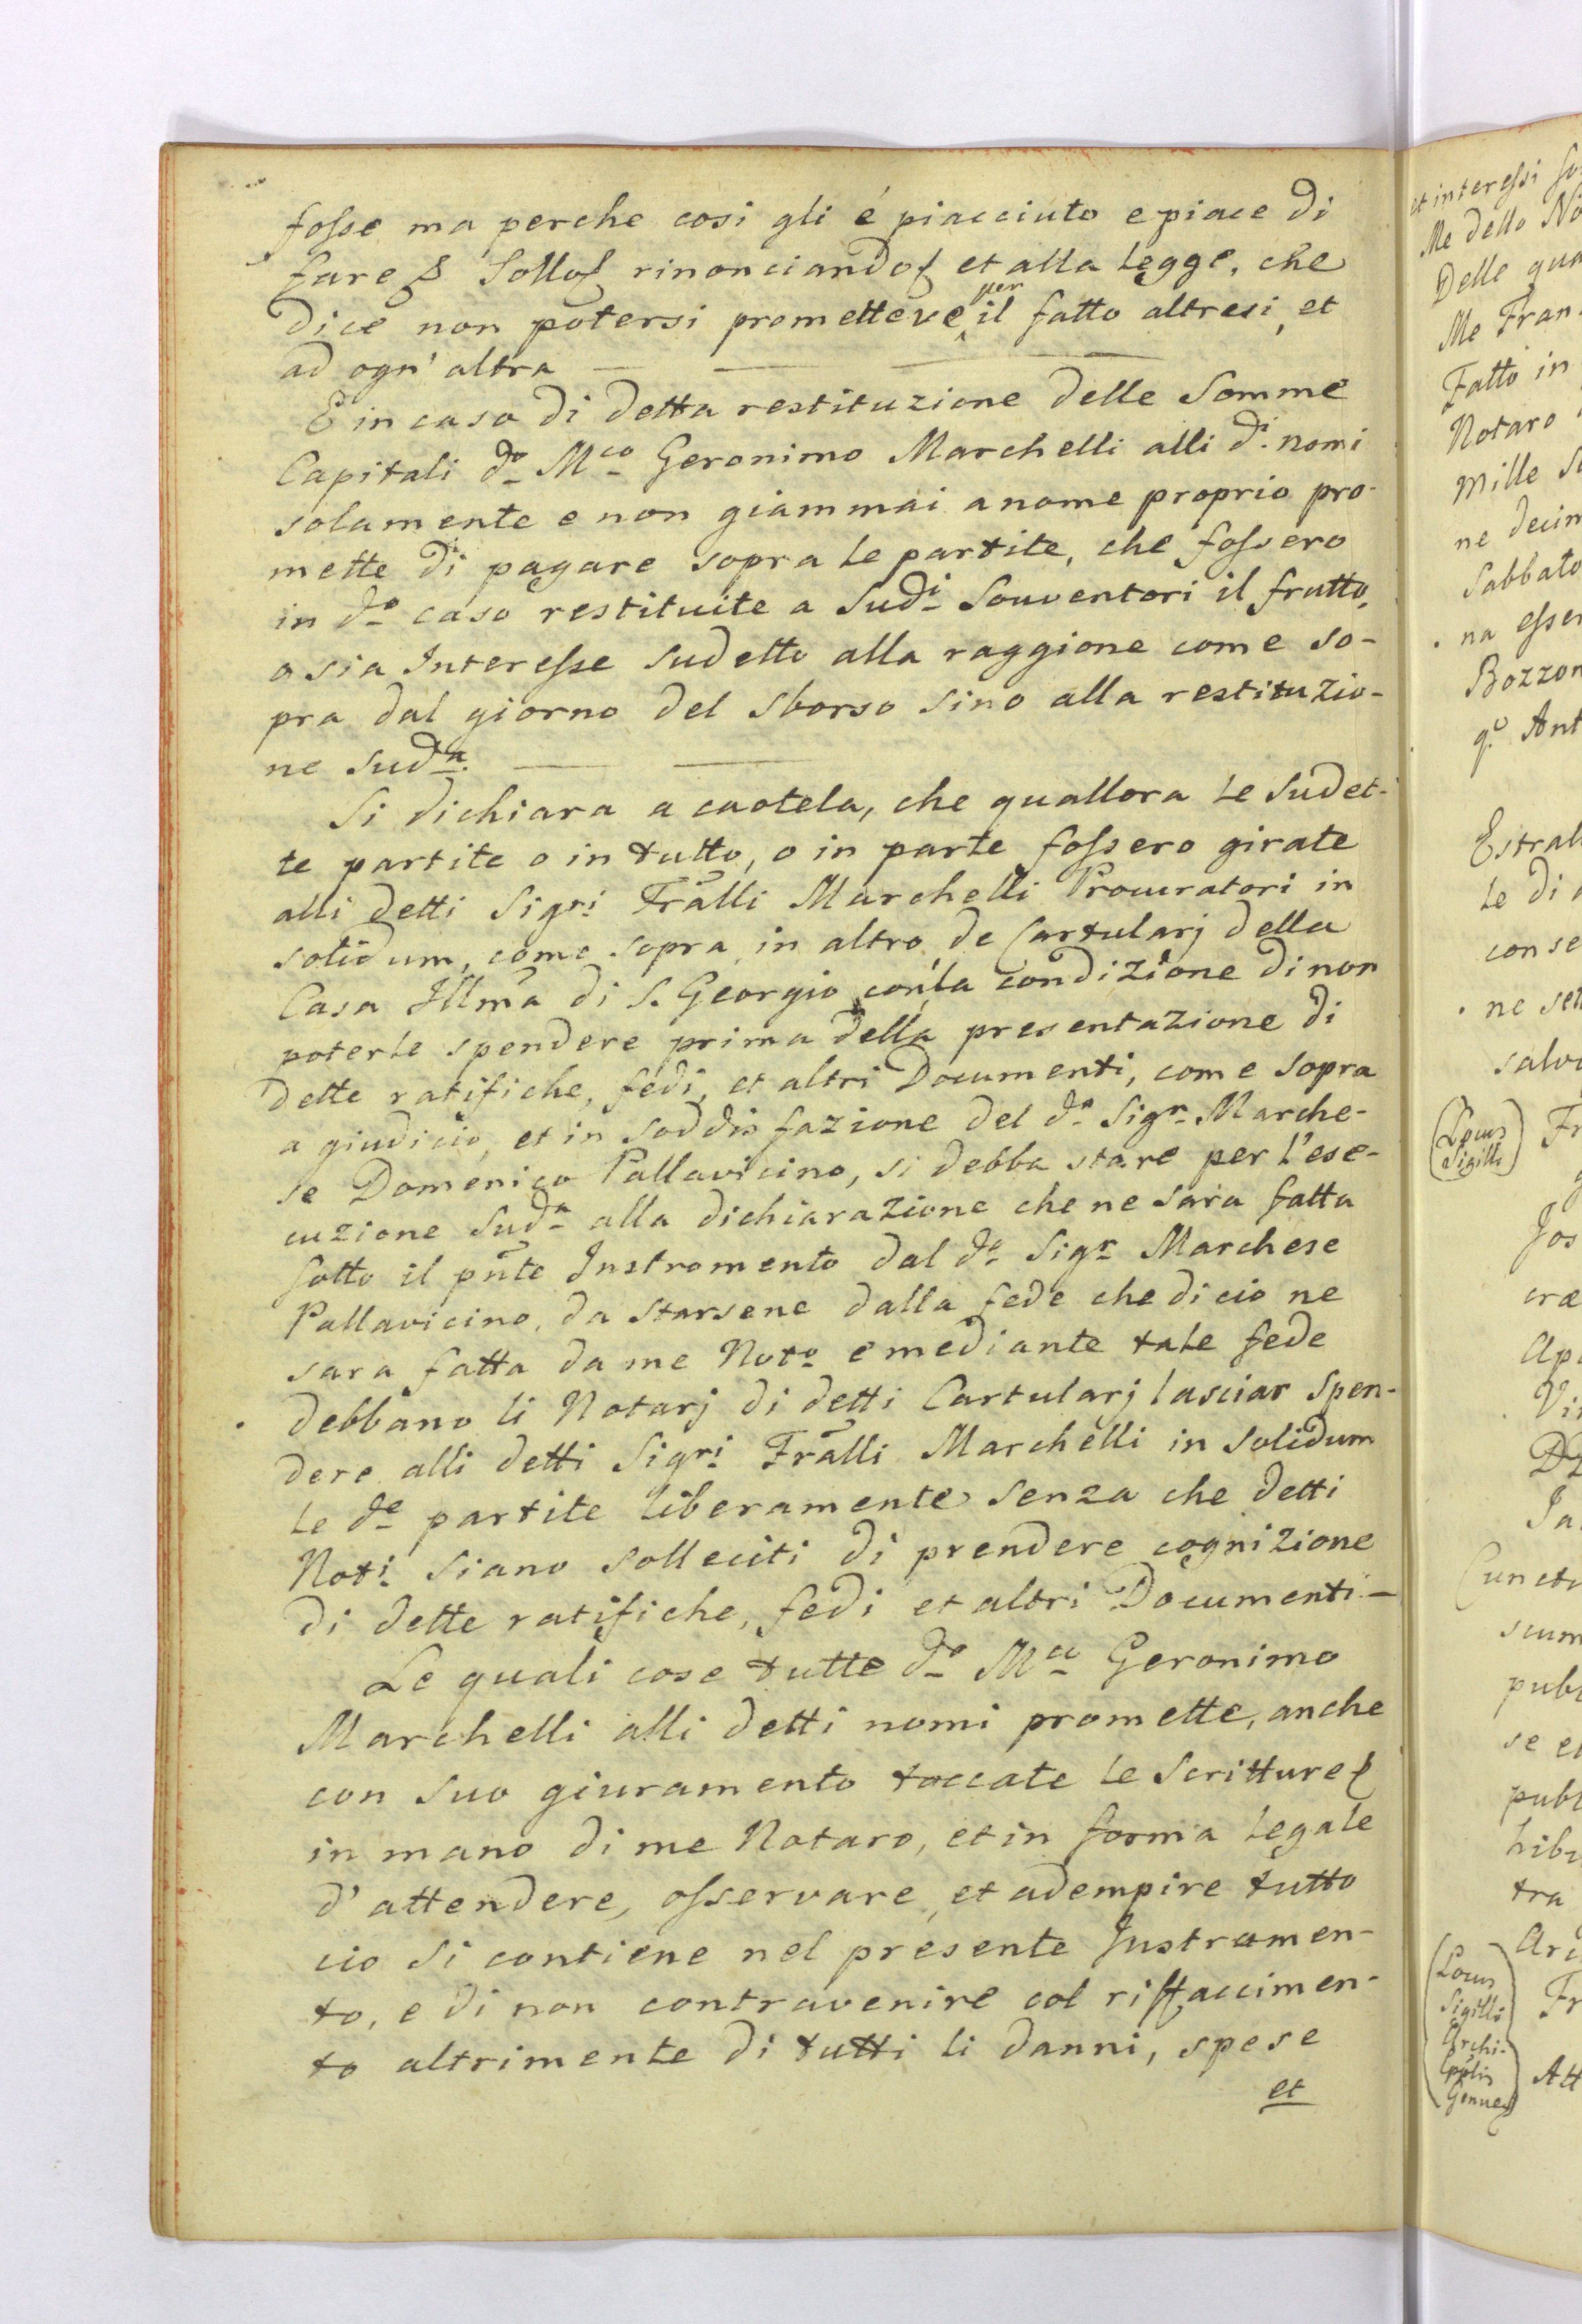 fosse ma perche cosi gli é piacciuto e piace di
fare & Sollo rinonciando et alla Legge, che
dice non potersi promettere per il fatto altresi, et
ad ogn' altra
E in caso di detta restituzione delle Somme
Capitali do Mco Geronimo Marchelli alli di nomi
solamente e non giammai a nome proprio pro-
mette di pagare sopra le partite, che fossero
in do caso restituite a Sudi Souventori il frutto,
o sia Interesse Sudetto alla raggione come so-
pra dal giorno del Sborso Sino alla restituzio-
ne Suda.
Si dichiara a cautela, che quallora le Sudet-
te partite o in tutto, o in parte fossero girate
alli detti Sigri Fralli Marchelli Procuratori in
solidum, come sopra in altro de Cartularj della
Casa Illma di S. Georgio con la condizione di non
poterle spendere prima della presentazione di
dette ratifiche, fedi, et altri Documenti, come sopra
a giudicio, et in Soddisfazione del do Sigr Marche-
se Domenico Pallavicino, si debba stare per l'ese-
cuzione Suda alla dichiarazione che ne sara fatta
Sotto il pnte Instromento dal do Sigr Marchese
Pallavicino, da starsene dalla fede che di cio ne
sara fatta da me Noto e mediante tale fede
debbano li Notarj di detti Cartularj lasciar Spen-
dere alli detti Sigri Fralli Marchelli in Solidum
le de partite liberamente senza che detti
Noti Siano Solleciti di prendere cognizione
di dette ratifiche, fedi et altri Documenti -
Le quali cose tutte do Mco Geronimo
Marchelli alli detti nomi promette, anche
con Suo giuramento toccate le Scritture
in mano di me Notaro, et in forma Legale
d'attendere, osservare, et adempire tutto
cio Si contiene nel presente Instromen-
to, e di non contravenire col riffaccimen-
to altrimente di tutti li danni, spese
et
et interessi
Me dello No
Delle qua
Me Fran
Fatto in
Notaro
Mille
ne decim
Sabbato
na esser
Bozzon
q. Ant
Estrat
Le di
con se
ne
salvo
(Locus Sigilli) Fr
Jos
cræ
Ap
Vi
Ja
Cuncti
scum
publ
se e
publ
hibi
tra
Arc
(Locus Sigilli Archi- Genuen) Fr
Att